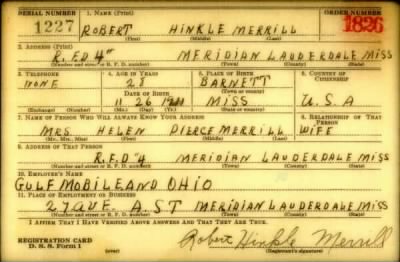 SERIAL NUMBER 1. NAME (Print) ORDER NUMBER
1227 ROBERT HINKLE MERRILL 1826
(First) (Middle) (Last)
2. ADDRESS (Print)
R.F.D 4" MERIDIAN LAUDERDALE MISS
(Number and street or R. F. D. number) (Town) (County) (State)
3. TELEPHONE 4. AGE IN YEARS 5. PLACE OF BIRTH 6. COUNTRY OF CITIZENSHIP
NONE 28 BARNETT
DATE OF BIRTH (Town or county)
11 26 MISS U.S.A
(Mo.) (Day) (Yr.) (State or country)
7. NAME OF PERSON WHO WILL ALWAYS KNOW YOUR ADDRESS 8. RELATIONSHIP OF THAT PERSON
MRS HELEN PIERCE MERRILL WIFE
(Mr., Mrs., Miss) (First) (Middle) (Last)
9. ADDRESS OF THAT PERSON
R.F.D "4 MERIDIAN LAUDERDALE MISS
(Number and street or R. F. D. number) (Town) (County) (State)
10. EMPLOYER'S NAME
GULF MOBILE AND OHIO
11. PLACE OF EMPLOYMENT OR BUSINESS
27 AVE. A. ST MERIDIAN LAUDERDALE MISS
(Number and street or R. F. D. number) (Town) (County) (State)
I AFFIRM THAT I HAVE VERIFIED ABOVE ANSWERS AND THAT THEY ARE TRUE.
REGISTRATION CARD
D. S. S. Form 1 (over) Robert Hinkle Merrill
(Registrant's signature)